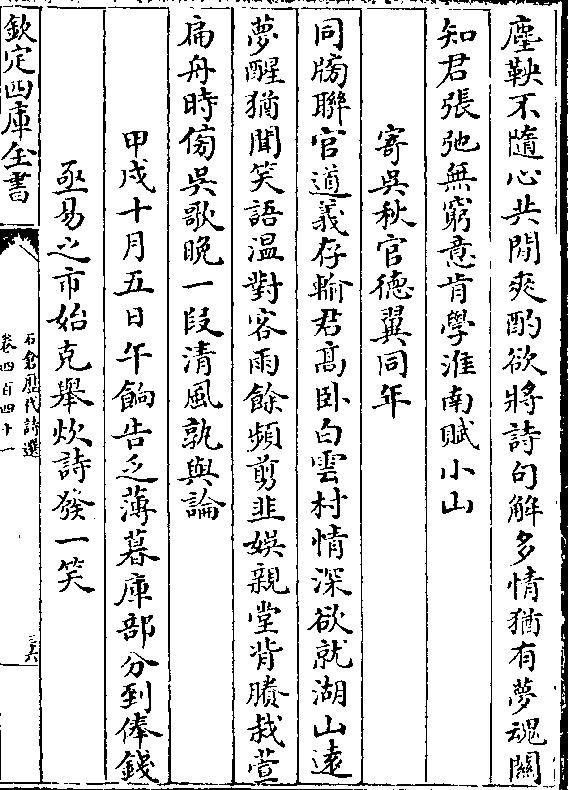 塵鞅不隨心共閒爽酌欲將詩句解多情猶有夢魂關
知君張弛無窮意肯學淮南賦小山
寄吳秋官德翼同年
同牓聯官道義存輸君高卧白雲村情深欲就湖山遠
夢醒猶聞笑語溫對客雨餘頻剪韭娛親堂背賸栽萱
扁舟時傍吳歌晚一段清風孰與論
甲戌十月五日午餉告乏薄暮庫部分到俸錢
亟易之市始克舉炊詩發一笑
欽定四庫全書
石倉歷代詩選
卷四百四十一
三六